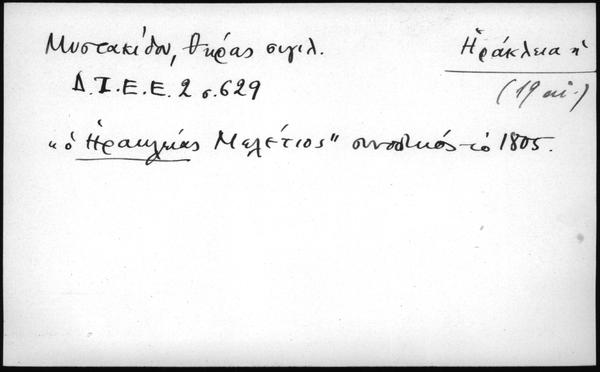 Μυστακίδου, Θήρας σιγιλ.
Δ.Ι.Ε.Ε. 2 σ. 629
Ἡράκλεια ἡ
(19 αἰ.)
"ὁ Ἡρακλείας Μελέτιος" συνοδικός τὸ 1805.